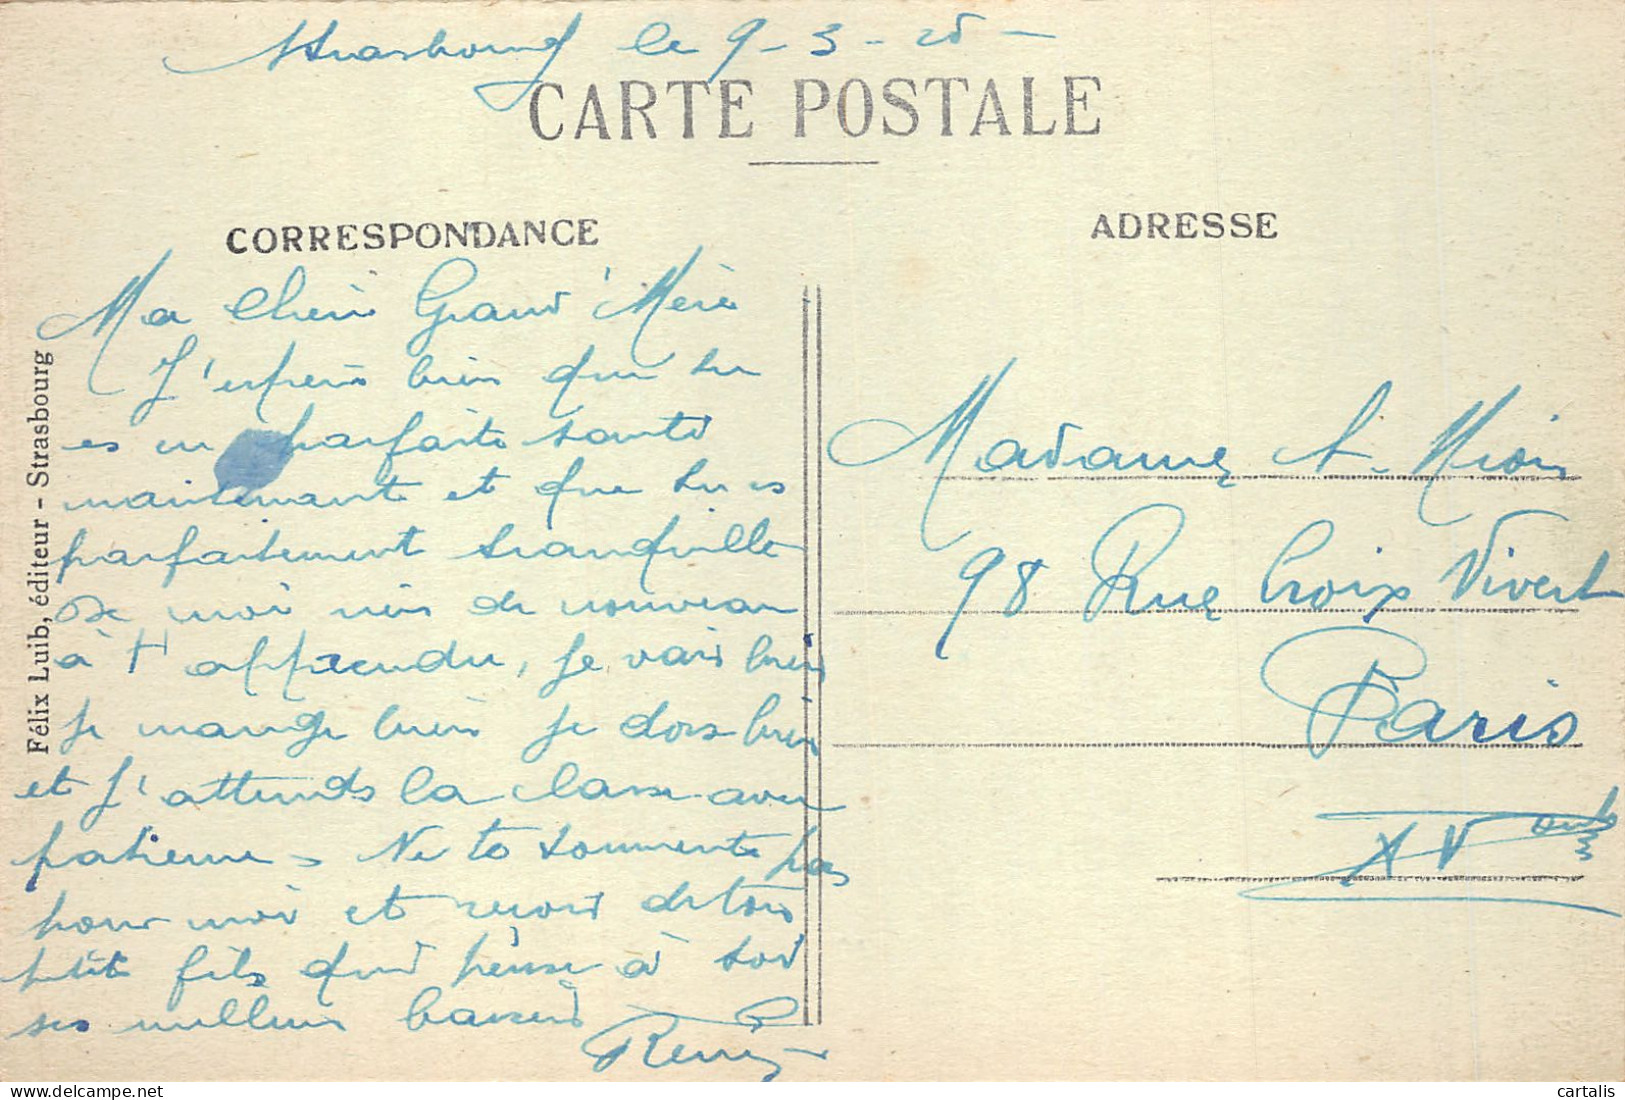 Strasbourg le 9-3-25-
CARTE POSTALE
CORRESPONDANCE
Ma Chère Grand'Mère
J'espère bien que tu
es en parfaite santé
maintenant et que tu es
parfaitement tranquille
De moi rien de nouveau
à t'apprendre, je vais bien
je mange bien je dors bien
et j'attends la classe avec
patience. Ne te tourmente pas
pour moi et reçois de ton
petit fils qui pense à toi
ses meilleurs baisers
Remy
Félix Luib, éditeur - Strasbourg
ADRESSE
Madame A.
98 Rue Croix Nivert
Paris
XV
cartalis